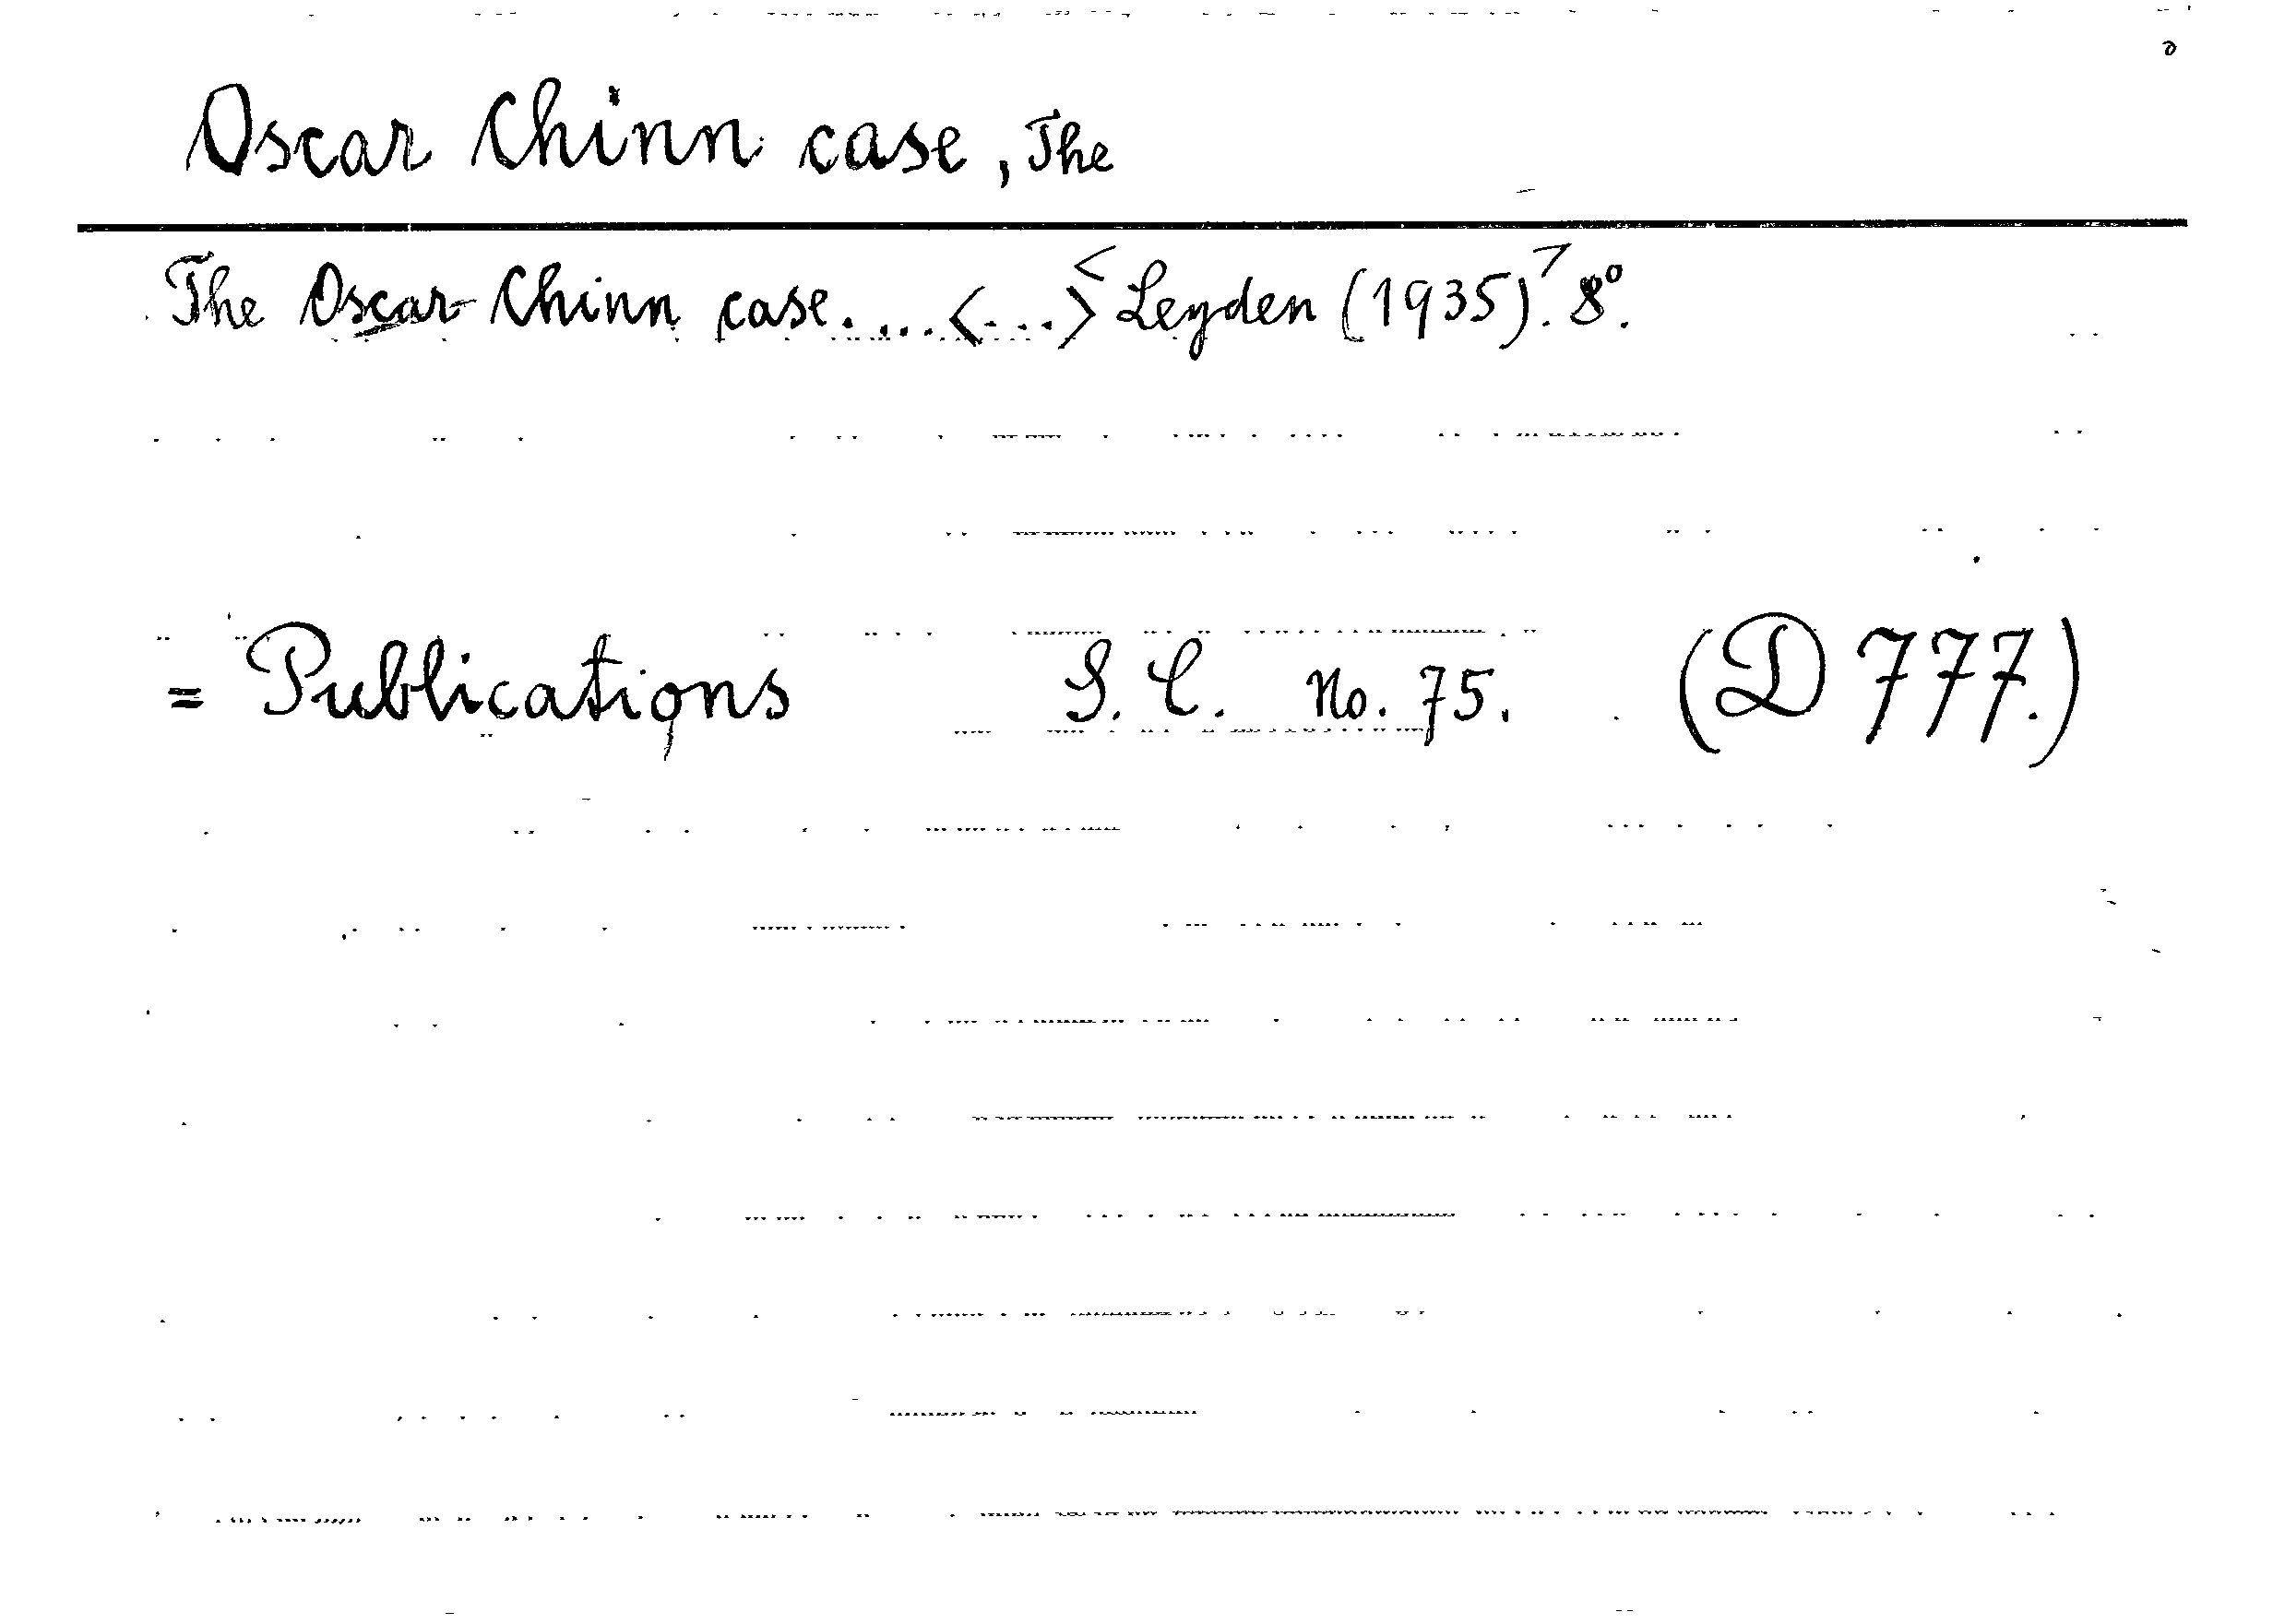 Oscar Chinn case, The
The Oscar Chinn case. ... <...> <Leyden (1935)>. 8°.
= Publications S. C. no. 75. (D 777.)